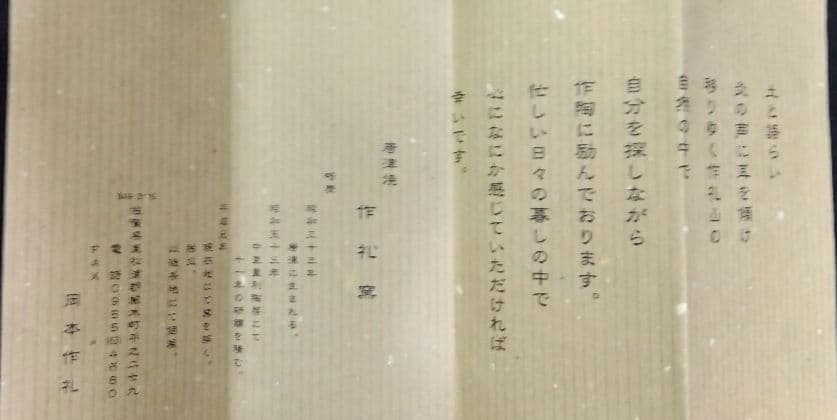 土と語らい
炎の声に耳を傾け
移りゆく作礼山の
自然の中で
自分を探しながら
作陶に励んでおります。
忙しい日々の暮しの中で
心になにか感じていただければ
幸いです。
唐津焼
作礼窯
略歴
昭和三十三年
唐津に生まれる。
昭和五十三年
中里重利陶房にて
十一年の研鑽を積む。
平成元年
現在地にて窯を築く。
独立。
以後各地にて個展。
佐賀県東松浦郡厳木町平之
電話0955
FAX
岡本作礼